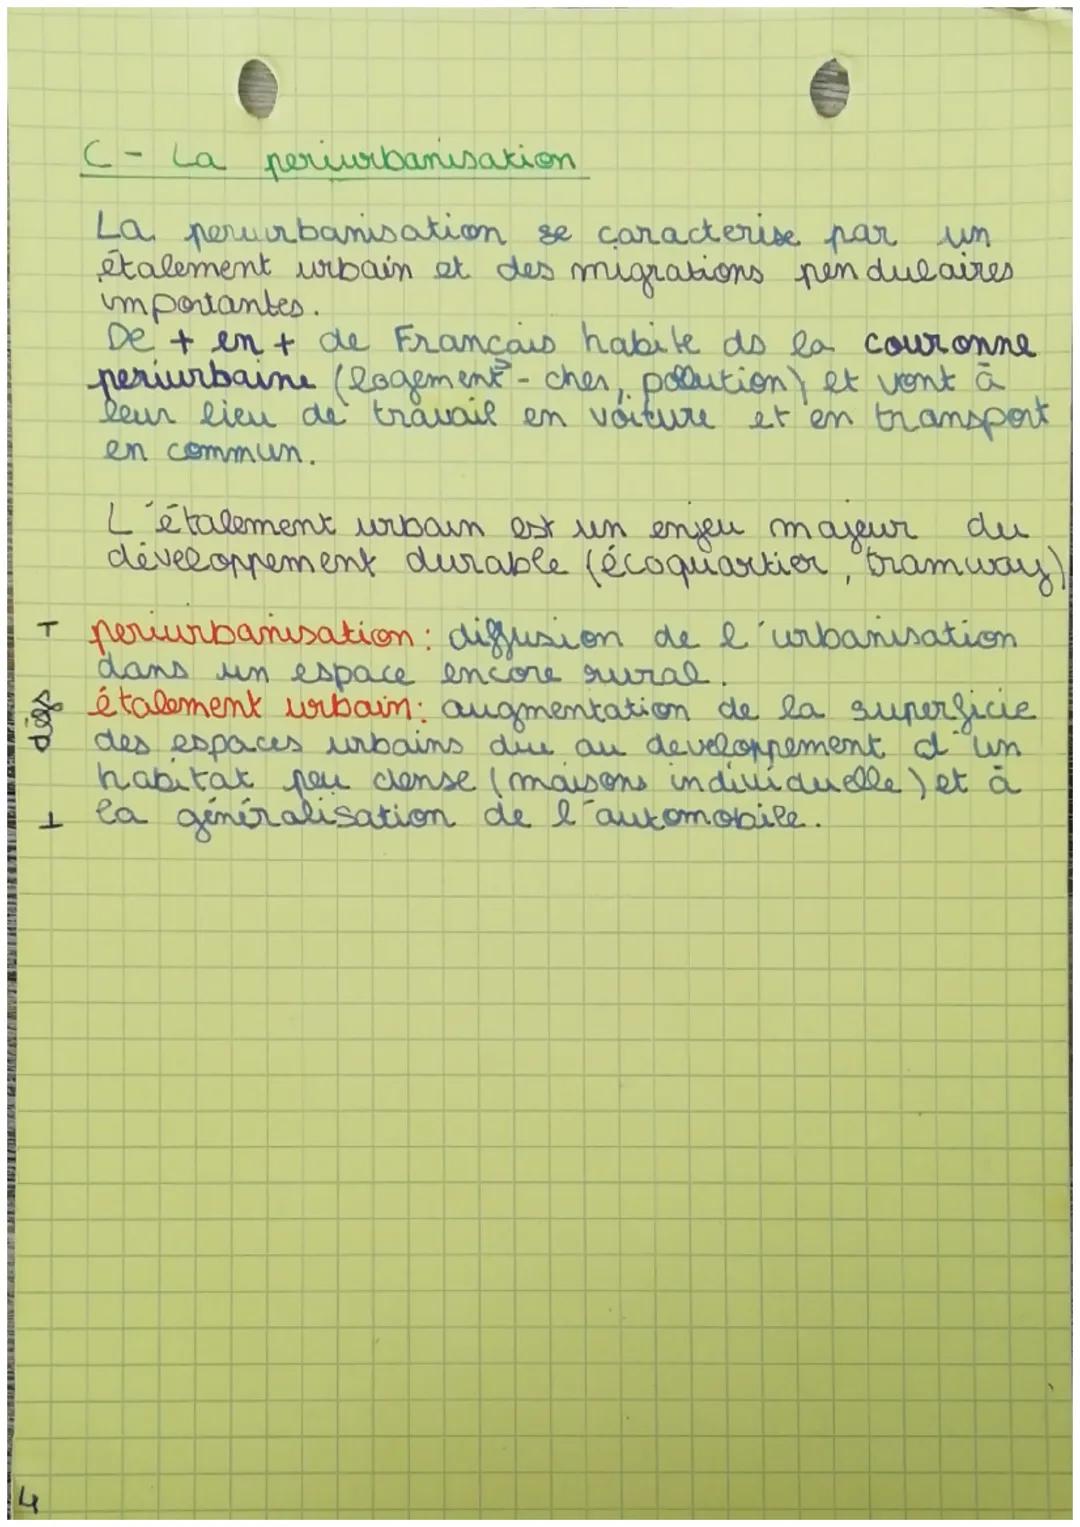 C - La periurbanisation
La periurbanisation se caracterise par un
étalement urbain et des migrations pendulaires
importantes.
De + en + de Français habite ds la couronne
periurbaine (logements - cher, pollution) et vont à
leur lieu de travail en voiture et en transport
en commun.
L'étalement urbain est un enjeu majeur du
développement durable (écoquartier, tramway)
periurbanisation : diffusion de l'urbanisation
dans un espace encore rural.
défs
étalement urbain : augmentation de la superficie
des espaces urbains due au developpement d'un
habitat peu dense (maisons individuelle) et à
la généralisation de l'automobile.
4